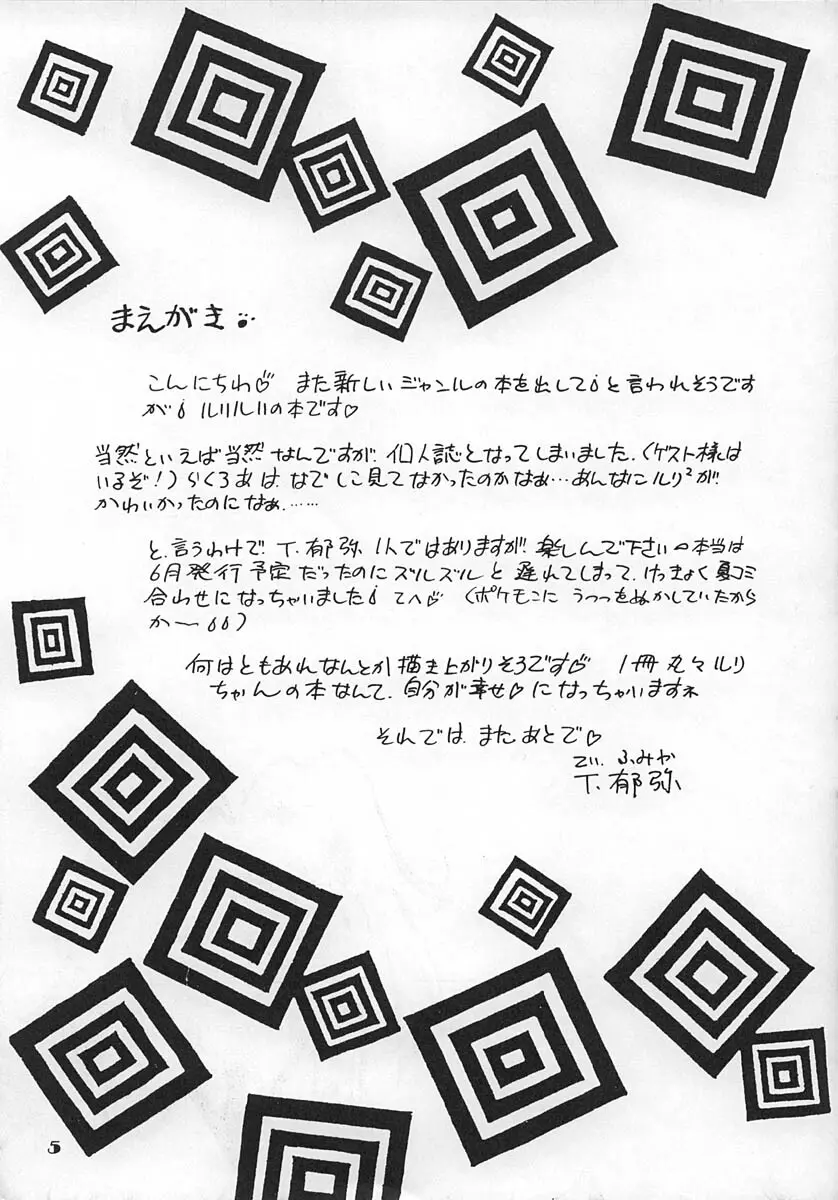 まえがき
こんにちわ♡ また新しいジャンルの本を出して💧と言われそうです
が💧ルリルリの本です♡
当然といえば当然なんですが、個人誌となってしまいました。(ゲスト様は
いるぞ!)らくろあは、なでしこ見てなかったのかなぁ…あんなにルリ²が
かわいかったのになぁ……
と、言うわけで、T.郁弥 1人ではありますが、楽しんで下さい 本当は
6月発行予定だったのにズルズルと遅れてしまって、けっきょく夏コミ
合わせになっちゃいました💧てへ♡ (ポケモンにうつつをぬかしていたから
か〜💧💧)
何はともあれなんとか描き上がりそうです♡ 1冊丸々ルリ
ちゃんの本なんて、自分が幸せ♡になっちゃいますネ
それでは、またあとで♡
てぃ. ふみや
T.郁弥
5